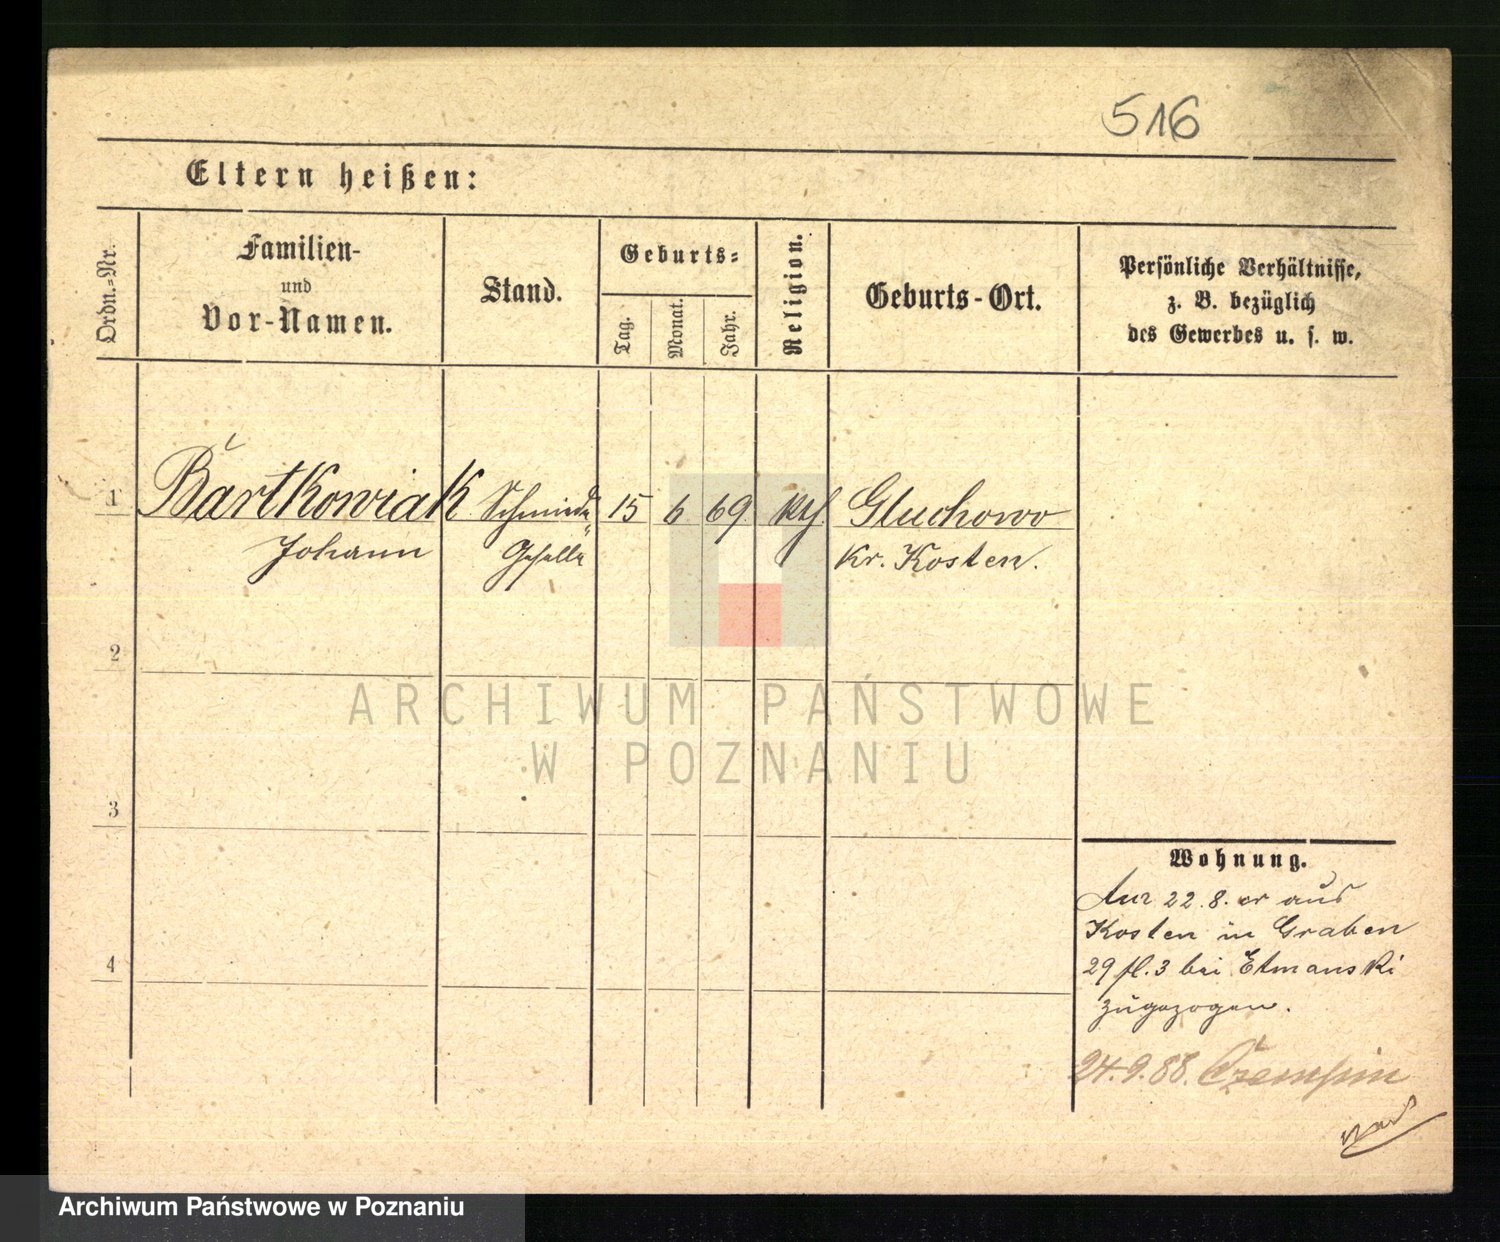 516
Eltern heißen:
Ordn.-Nr.
Familien-
und
Vor-Namen.
Stand.
Geburts-
Tag.
Monat.
Jahr.
Religion.
Geburts-Ort.
Persönliche Verhältnisse,
z. B. bezüglich
des Gewerbes u. s. w.
1 Bartkowiak Schmiede 15 6 69 Kth. Gluchowo
Johann Geselle Kr. Kosten.
2
3
4
Wohnung.
22.8. cr aus
Kosten in Graben
29 fl. 3 bei Etmanski
zugezogen.
24.9.88. Czempin
ARCHIWUM PAŃSTWOWE
W POZNANIU
Archiwum Państwowe w Poznaniu